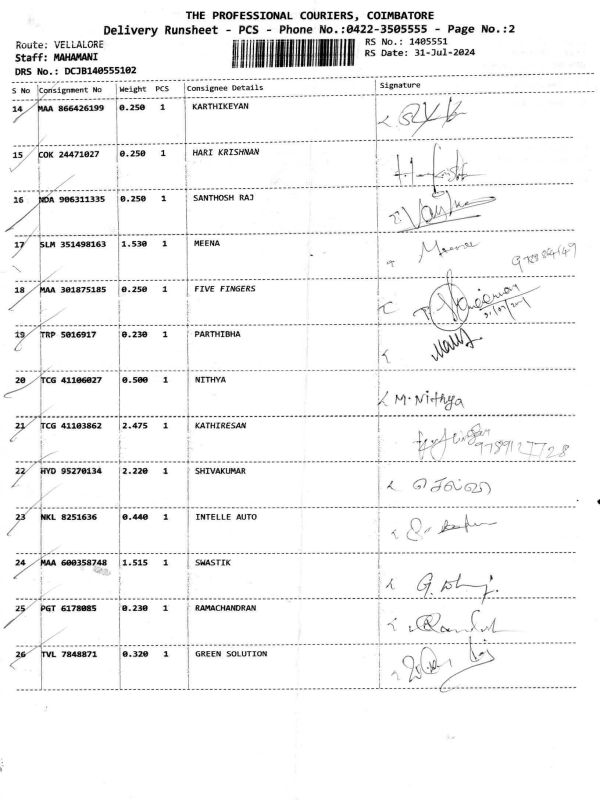 THE PROFESSIONAL COURIERS, COIMBATORE
Delivery Runsheet - PCS - Phone No.:0422-3505555 - Page No.:2
Route: VELLALORE RS No.: 1405551
Staff: MAHAMANI RS Date: 31-Jul-2024
DRS No.: DCJB140555102
S No Consignment No Weight PCS Consignee Details Signature
14 MAA 866426199 0.250 1 KARTHIKEYAN
15 COK 24471027 0.250 1 HARI KRISHNAN
16 NDA 906311335 0.250 1 SANTHOSH RAJ
17 SLM 351498163 1.530 1 MEENA Meena
18 MAA 301875185 0.250 1 FIVE FINGERS
19 TRP 5016917 0.230 1 PARTHIBHA
20 TCG 41106027 0.500 1 NITHYA M. Nithya
21 TCG 41103862 2.475 1 KATHIRESAN
22 HYD 95270134 2.220 1 SHIVAKUMAR செல்வி
23 NKL 8251636 0.440 1 INTELLE AUTO
24 MAA 600358748 1.515 1 SWASTIK
25 PGT 6178085 0.230 1 RAMACHANDRAN
26 TVL 7848871 0.320 1 GREEN SOLUTION